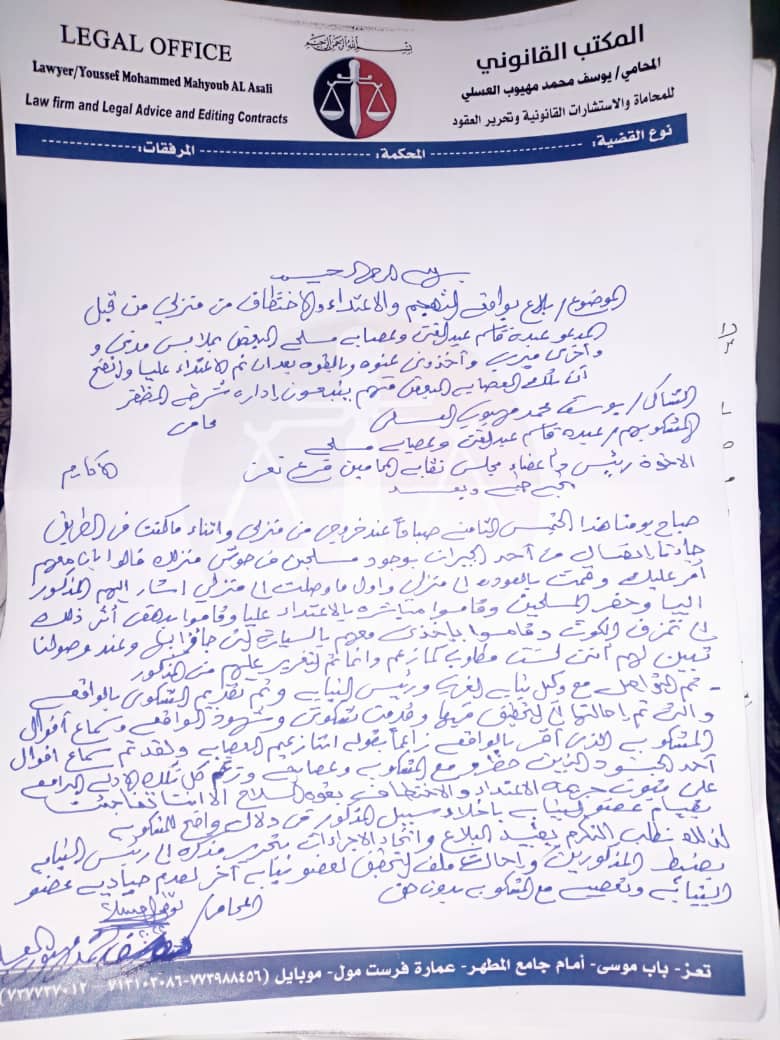 LEGAL OFFICE
Lawyer/Youssef Mohammed Mahyoub AL Asali
Law firm and Legal Advice and Editing Contracts
بسم الله الرحمن الرحيم
المكتب القانوني
المحامي/ يوسف محمد مهيوب العسلي
للمحاماة والاستشارات القانونية وتحرير العقود
نوع القضية: المحكمة: المرفقات:
بسم الله الرحمن الرحيم
الموضوع / بلاغ بواقعة التهجم والاعتداء والاختطاف من منزلي من قبل
المدعو عبده قاسم عبدالغني وعصابه مسلحه البعض بملابس مدني و
وأخرى ميري وأخذوني عنوه وبالقوه بعد ان تم الاعتداء عليا واتضح
أن تلك العصابه البعض منهم يتبعون إدارة شرطه المظفر
الشاكي / يوسف محمد مهيوب العسلي محامي
المشكو بهم / عبده قاسم عبدالغني وعصابه مسلحه
الاخوة رئيس وأعضاء مجلس نقابه المحامين فرع تعز الأكارم
تحيه طيبه وبعد
صباح يومنا هذا الخميس الثامنه صباحاً عند خروجي من منزلي واثناء ما كنت في الطريق
جاءنا اتصال من أحد الجيران بوجود مسلحين في حوش منزلك قالوا بان معهم
أمر عليك وقمت بالعوده الى منزلي واول ما وصلت الى منزلي اشار اليهم المذكور
اليا وحضر المسلحين وقاموا مباشره بالاعتداء عليا وقاموا أثر ذلك
الى تمزق الكوت وقاموا بأخذي معهم بالسيارة وعند وصولنا
تبين لهم أنني لست مطلوب كما زعم وانما تم التغرير عليهم من المذكور
- تم التواصل مع وكيل نيابه الغربيه ورئيس النيابه وتم تقديم الشكوى بالواقعه
والتي تم إحالتها الى للتحقيق فيها وقدمت شكوتي وشهود الواقعه وسماع أقوال
المشكو به الذي أقر بالواقعه زاعماً بقوله العصابه ولقد تم سماع اقوال
أحد الجنود الذين حضرو مع المشكو به وعصابته ورغم كل تلك الأدله الدامغه
على ثبوت جريمه الاعتداء والاختطاف بقوه السلاح الا اننا تفاجئت
بقيام عضو النيابه باخلاء سبيل المذكور في دلاله واضحه للمشكو به
لذلك نطلب التكرم بقيد البلاغ واتخاذ الاجراءات بتحرير مذكره الى رئيس النيابه
بضبط المذكورين واحالت ملف التحقيق لعضو نيابه آخر لعدم حياديه عضو
النيابه وتعصبه مع المشكو به بدون حق
المحامي
تعز- باب موسى- أمام جامع المطهر- عمارة فرست مول- موبايل (٧٧٣٩٨٨٤٥٦-٧١٣١٠٣٠٨٦ -٧٣٧٧٣٧٠١٢)